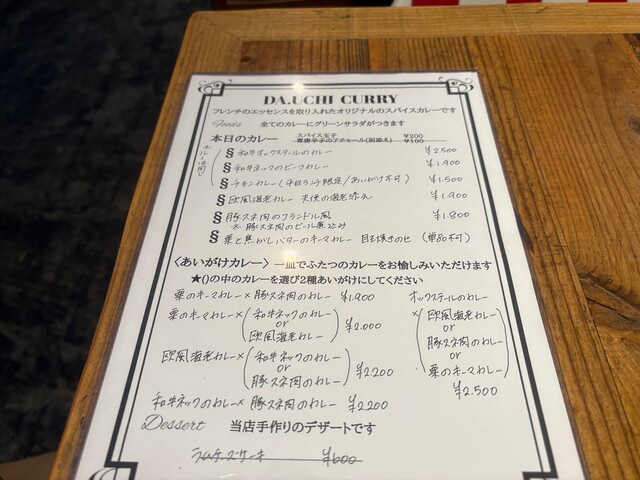 DA.UCHI CURRY
フレンチのエッセンスを取り入れたオリジナルのスパイスカレーです
Foods 全てのカレーにグリーンサラダがつきます
本日のカレー スパイス玉子 ¥200
青唐辛子のアチャール(別添え) ¥100
§ 和牛オックステールのカレー ¥2.500
§ 和牛ネックのビーフカレー ¥1.900
§ チキンカレー (平日ランチ限定/あいがけ不可) ¥1.500
§ 欧風海老カレー 天使の海老添え ¥1.900
§ 豚スネ肉のフランドル風 ¥1.800
※ 豚スネ肉のビール煮込み
§ 栗と焦がしバターのキーマカレー 目玉焼きのせ (単品不可)
〈あいがけカレー〉一皿でふたつのカレーをお愉しみいただけます
★()の中のカレーを選び2種あいがけにしてください
栗のキーマカレー × 豚スネ肉のカレー ¥1.900
栗のキーマカレー × (和牛ネックのカレー
or
欧風海老カレー) ¥2.000
欧風海老カレー × (和牛ネックのカレー
or
豚スネ肉のカレー) ¥2.200
和牛ネックのカレー × 豚スネ肉のカレー ¥2.200
オックステールのカレー
× (欧風海老カレー
or
豚スネ肉のカレー
or
栗のキーマカレー)
¥2.500
Dessert 当店手作りのデザートです
ラムチーズケーキ ¥600